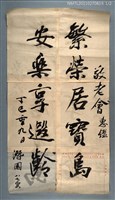 敬老會惠鑑
繁榮居寶島
安樂享遐齡
丁巳重九日